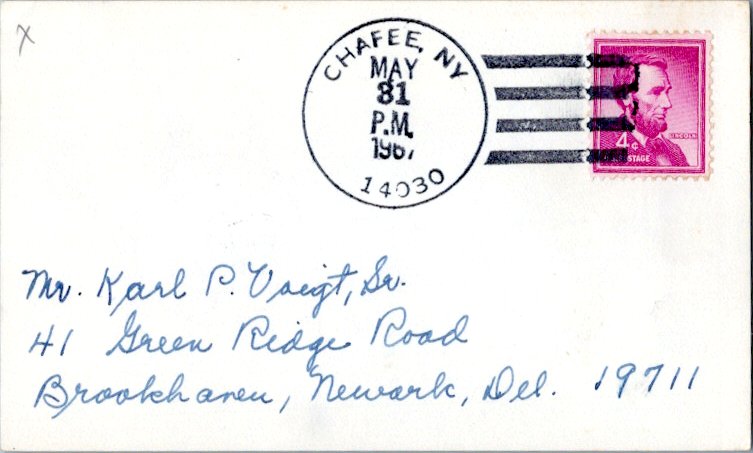 x
CHAFEE, NY
MAY
31
P.M.
1967
14030
LINCOLN
4¢
POSTAGE
Mr. Karl P. Voigt, Sr.
41 Green Ridge Road
Brookhaven, Newark, Del. 19711